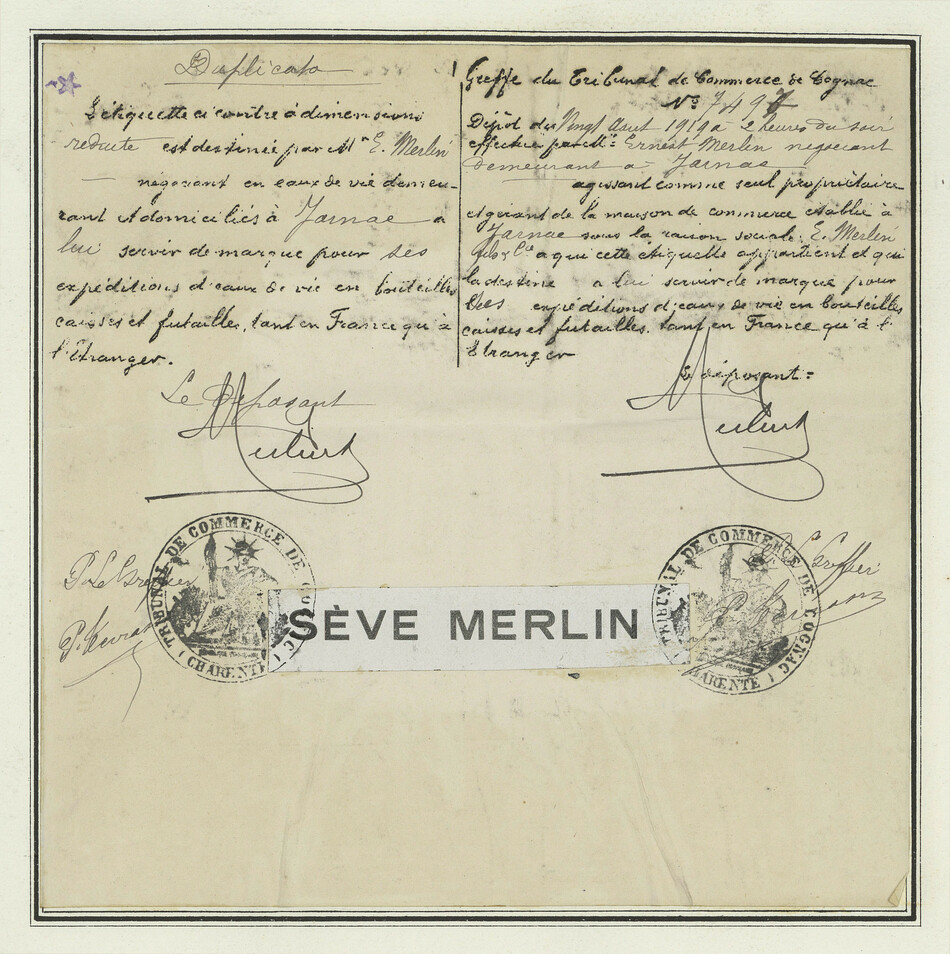 Duplicata
L'étiquette ci contre à dimensions
reduite est destinée par Mr E. Merlin
négociant en eaux de vie demeu-
rant et domiciliés à Jarnac a
lui servir de marque pour ses
expéditions d'eaux de vie en bouteilles
caisses et futailles, tant en France qu'à
l'Étranger.
Le Déposant
Merlin
P. Le Greffier
Greffe du Tribunal de Commerce de Cognac
No 7497
Dépôt du Vingt Aout 1919 à 2 heures du soir
effectué par M: Ernest Merlin negociant
demeurant a Jarnac
agissant comme seul propriétaire
et gérant de la maison de commerce établie à
Jarnac sous la raison sociale: E. Merlin
fils & Cie a qui cette étiquette appartient et qui
la destine a lui servir de marque pour
ses expéditions d'eaux de vie en bouteilles
caisses et futailles, tant en France qu'à l'
Étranger
Le déposant =
Merlin
Le Greffier
TRIBUNAL DE COMMERCE DE COGNAC
(CHARENTE)
SÈVE MERLIN
TRIBUNAL DE COMMERCE DE COGNAC
(CHARENTE)